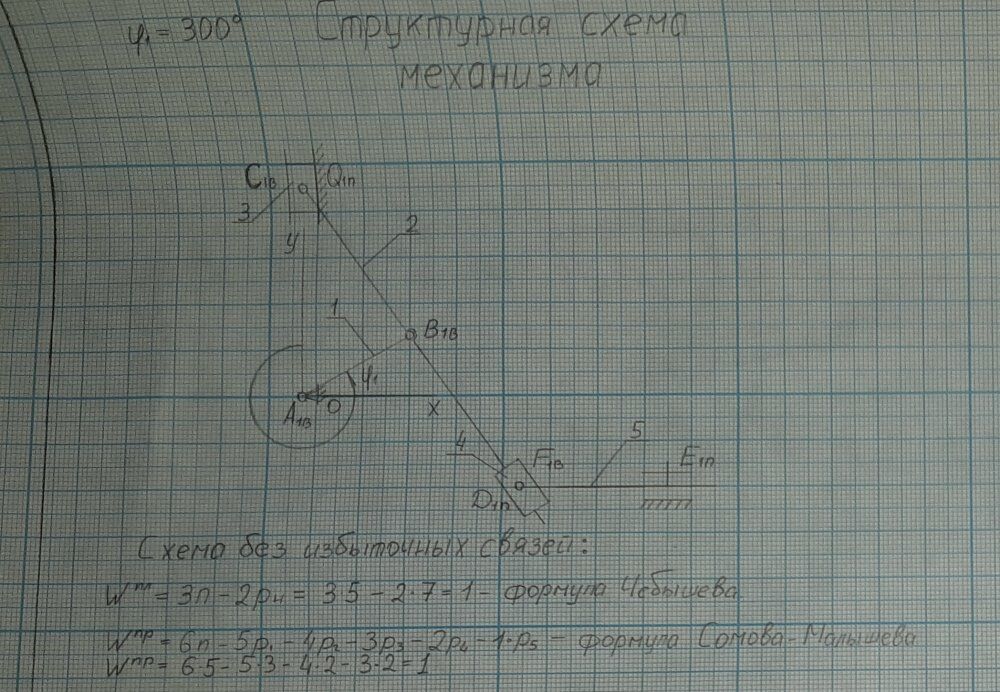 φ₁ = 300°
Структурная схема
механизма
C₁в Q₁п
3
2
y
1
B₁в
φ₁
A₁в O
x
5
4
F₁в E₁п
D₁п
Схема без избыточных связей:
Wᵖᴸ = 3n - 2p₄ = 3·5 - 2·7 = 1 - формула Чебышева
Wᵖᵖ = 6n - 5p₁ - 4p₂ - 3p₃ - 2p₄ - 1·p₅ - формула Сомова-Малышева
Wᵖᵖ = 6·5 - 5·3 - 4·2 - 3·2 = 1